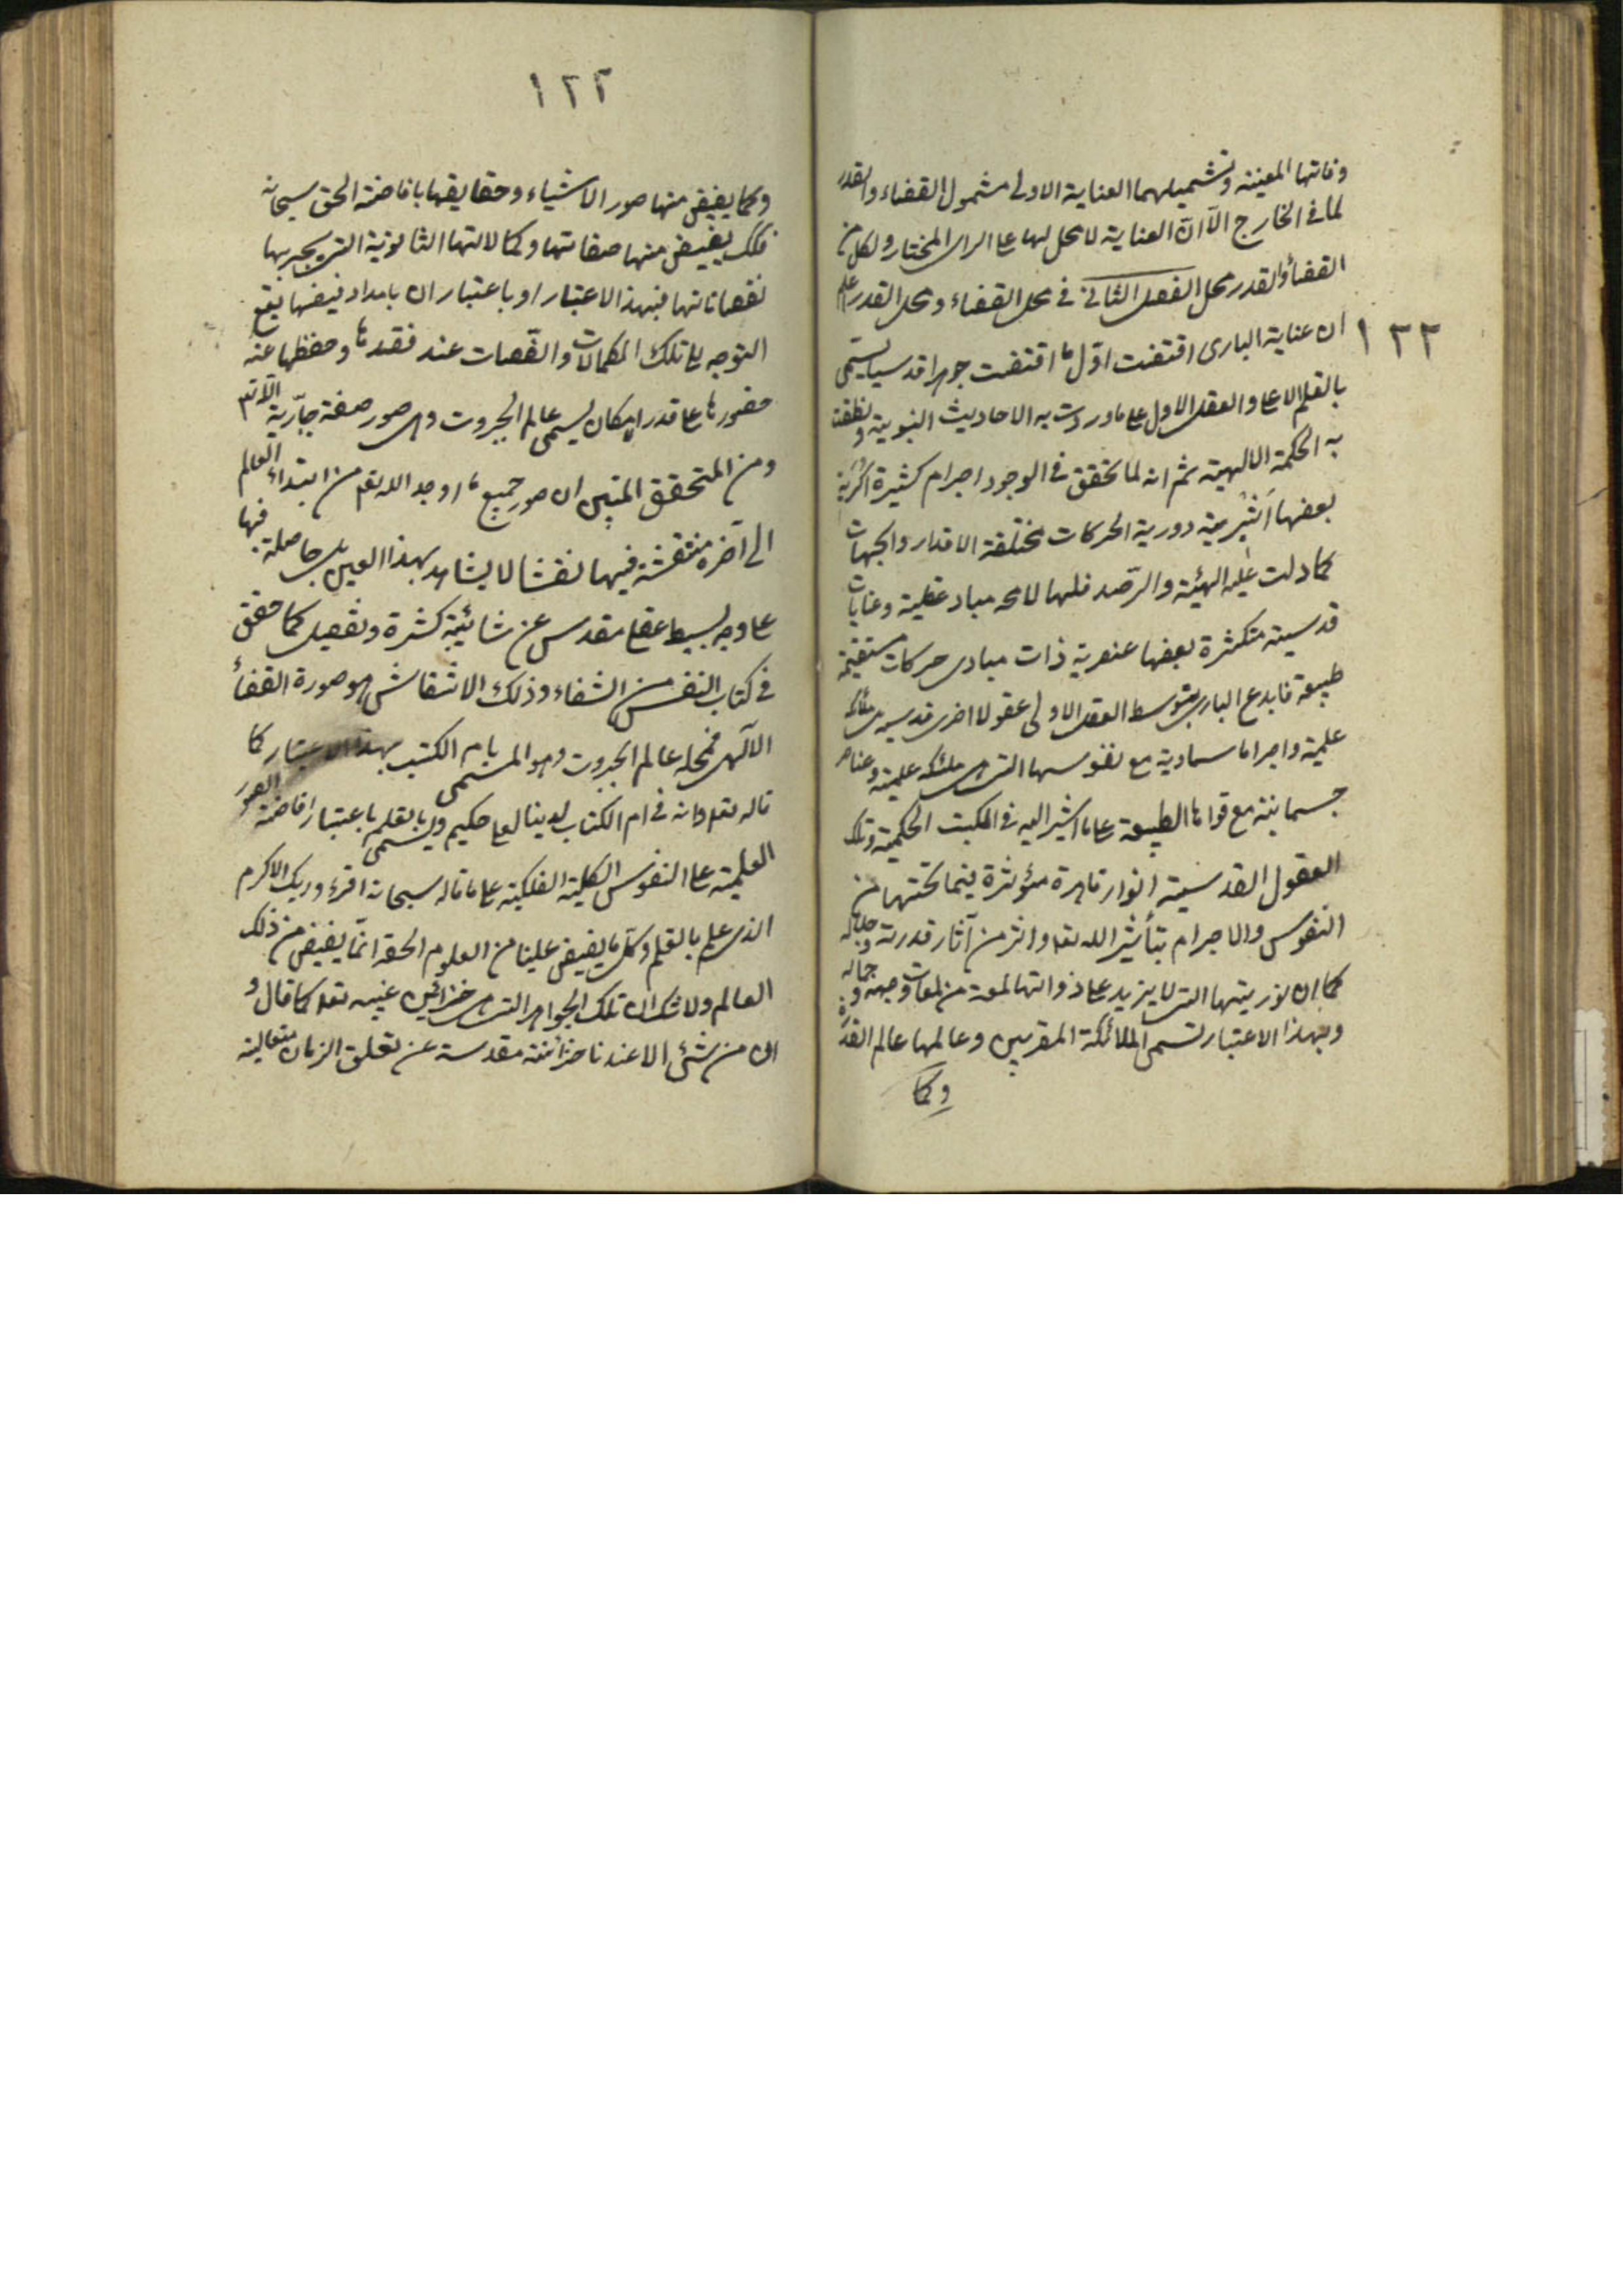 وفاتها المعينه وتشميلهما العناية الاولى مشمول القضاء والقدر
لما في الخارج الا ان العناية لا محل لها على الراى المختار ولكل من
القضاء والقدر محل الفصل الثاني في محل القضاء ومحل القدر اعلم
١٣٣
ان عناية البارى اقتضت اول ما اقتضت جوهرا قدسيا يسمى
بالقلم الاعلى والعقل الاول على ما وردت به الاحاديث النبوية ونطقت
به الحكمة الالهية ثم انه لما تحقق في الوجود اجرام كثيرة اكرية
بعضها اثيرية دورية الحركات مختلفة الاقدار والجهات
كما دلت عليه الهيئة والرصد فلها لا محه مباد عقلية وغايات
قدسية متكثرة بعضها عنصرية ذات مبادى حركات مستقيمة
طبيعة فابدع البارى بتوسط العقل الاولى عقولا اخرى قدسية هي ملائكه
علمية واجراما سماوية مع نفوسها التي هي ملئكه علمية وعناصر
جسمانية مع قواها الطبيعة على ما اشير اليه في الكتب الحكمية وتلك
العقول القدسية انوار قاهرة مؤثرة فيما تحتها من
النفوس والاجرام بتأثير الله تعا واثر من آثار قدرته وجلاله
كما ان نوريتها التي لا يزيد على ذواتها لمعة من لمعات وجهه وجماله
وبهذا الاعتبار تسمى الملائكة المقربين وعالمها عالم القدرة
وكما
١٢٢
وكما يفيض منها صور الاشياء وحقايقها بافاضة الحق سبحانه
فكك يفيض منها صفاتها وكمالاتها الثانوية التي يجبر بها
نقصاناتها فبهذا الاعتبار او باعتبار ان بامداد فيضها يقع
التوجه الى تلك الكمالات والقصات عند فقدها وحفظها عند
حضورها على قدر الامكان يسمى عالم الجبروت وهي صور صفة جبارية الله تم
ومن المتحقق المتبين ان صور جميع ما اوجد الله تعم من ابتداء العالم
الى آخره منتقشة فيها نقشا لا يشاهد بهذا العين بل حاصلة فيها
على وجه بسيط عقلى مقدس عن شائبة كثرة وتفصيل كما حقق
في كتاب النفس من الشفاء وذلك الانتقاش هو صورة القضأ
الآلهى فمحله عالم الجبروت وهو المسمى بام الكتب بهذا الاعتبار كما
قاله تعا وانه في ام الكتاب لدينا لعلى حكيم ويسمى بالقلم باعتبار افاضة الصور
العلمية على النفوس الكلية الفلكية على ما قاله سبحانه اقرء وربك الاكرم
الذى علم بالقلم وكل ما يفيض علينا من العلوم الحقه انما يفيض من ذلك
العالم ولا شك ان تلك الجواهر التي هي خزائن غيبه تعا كما قال و
ان من شئ الا عندنا خزائنه مقدسة عن تعلق الزمان متعالية